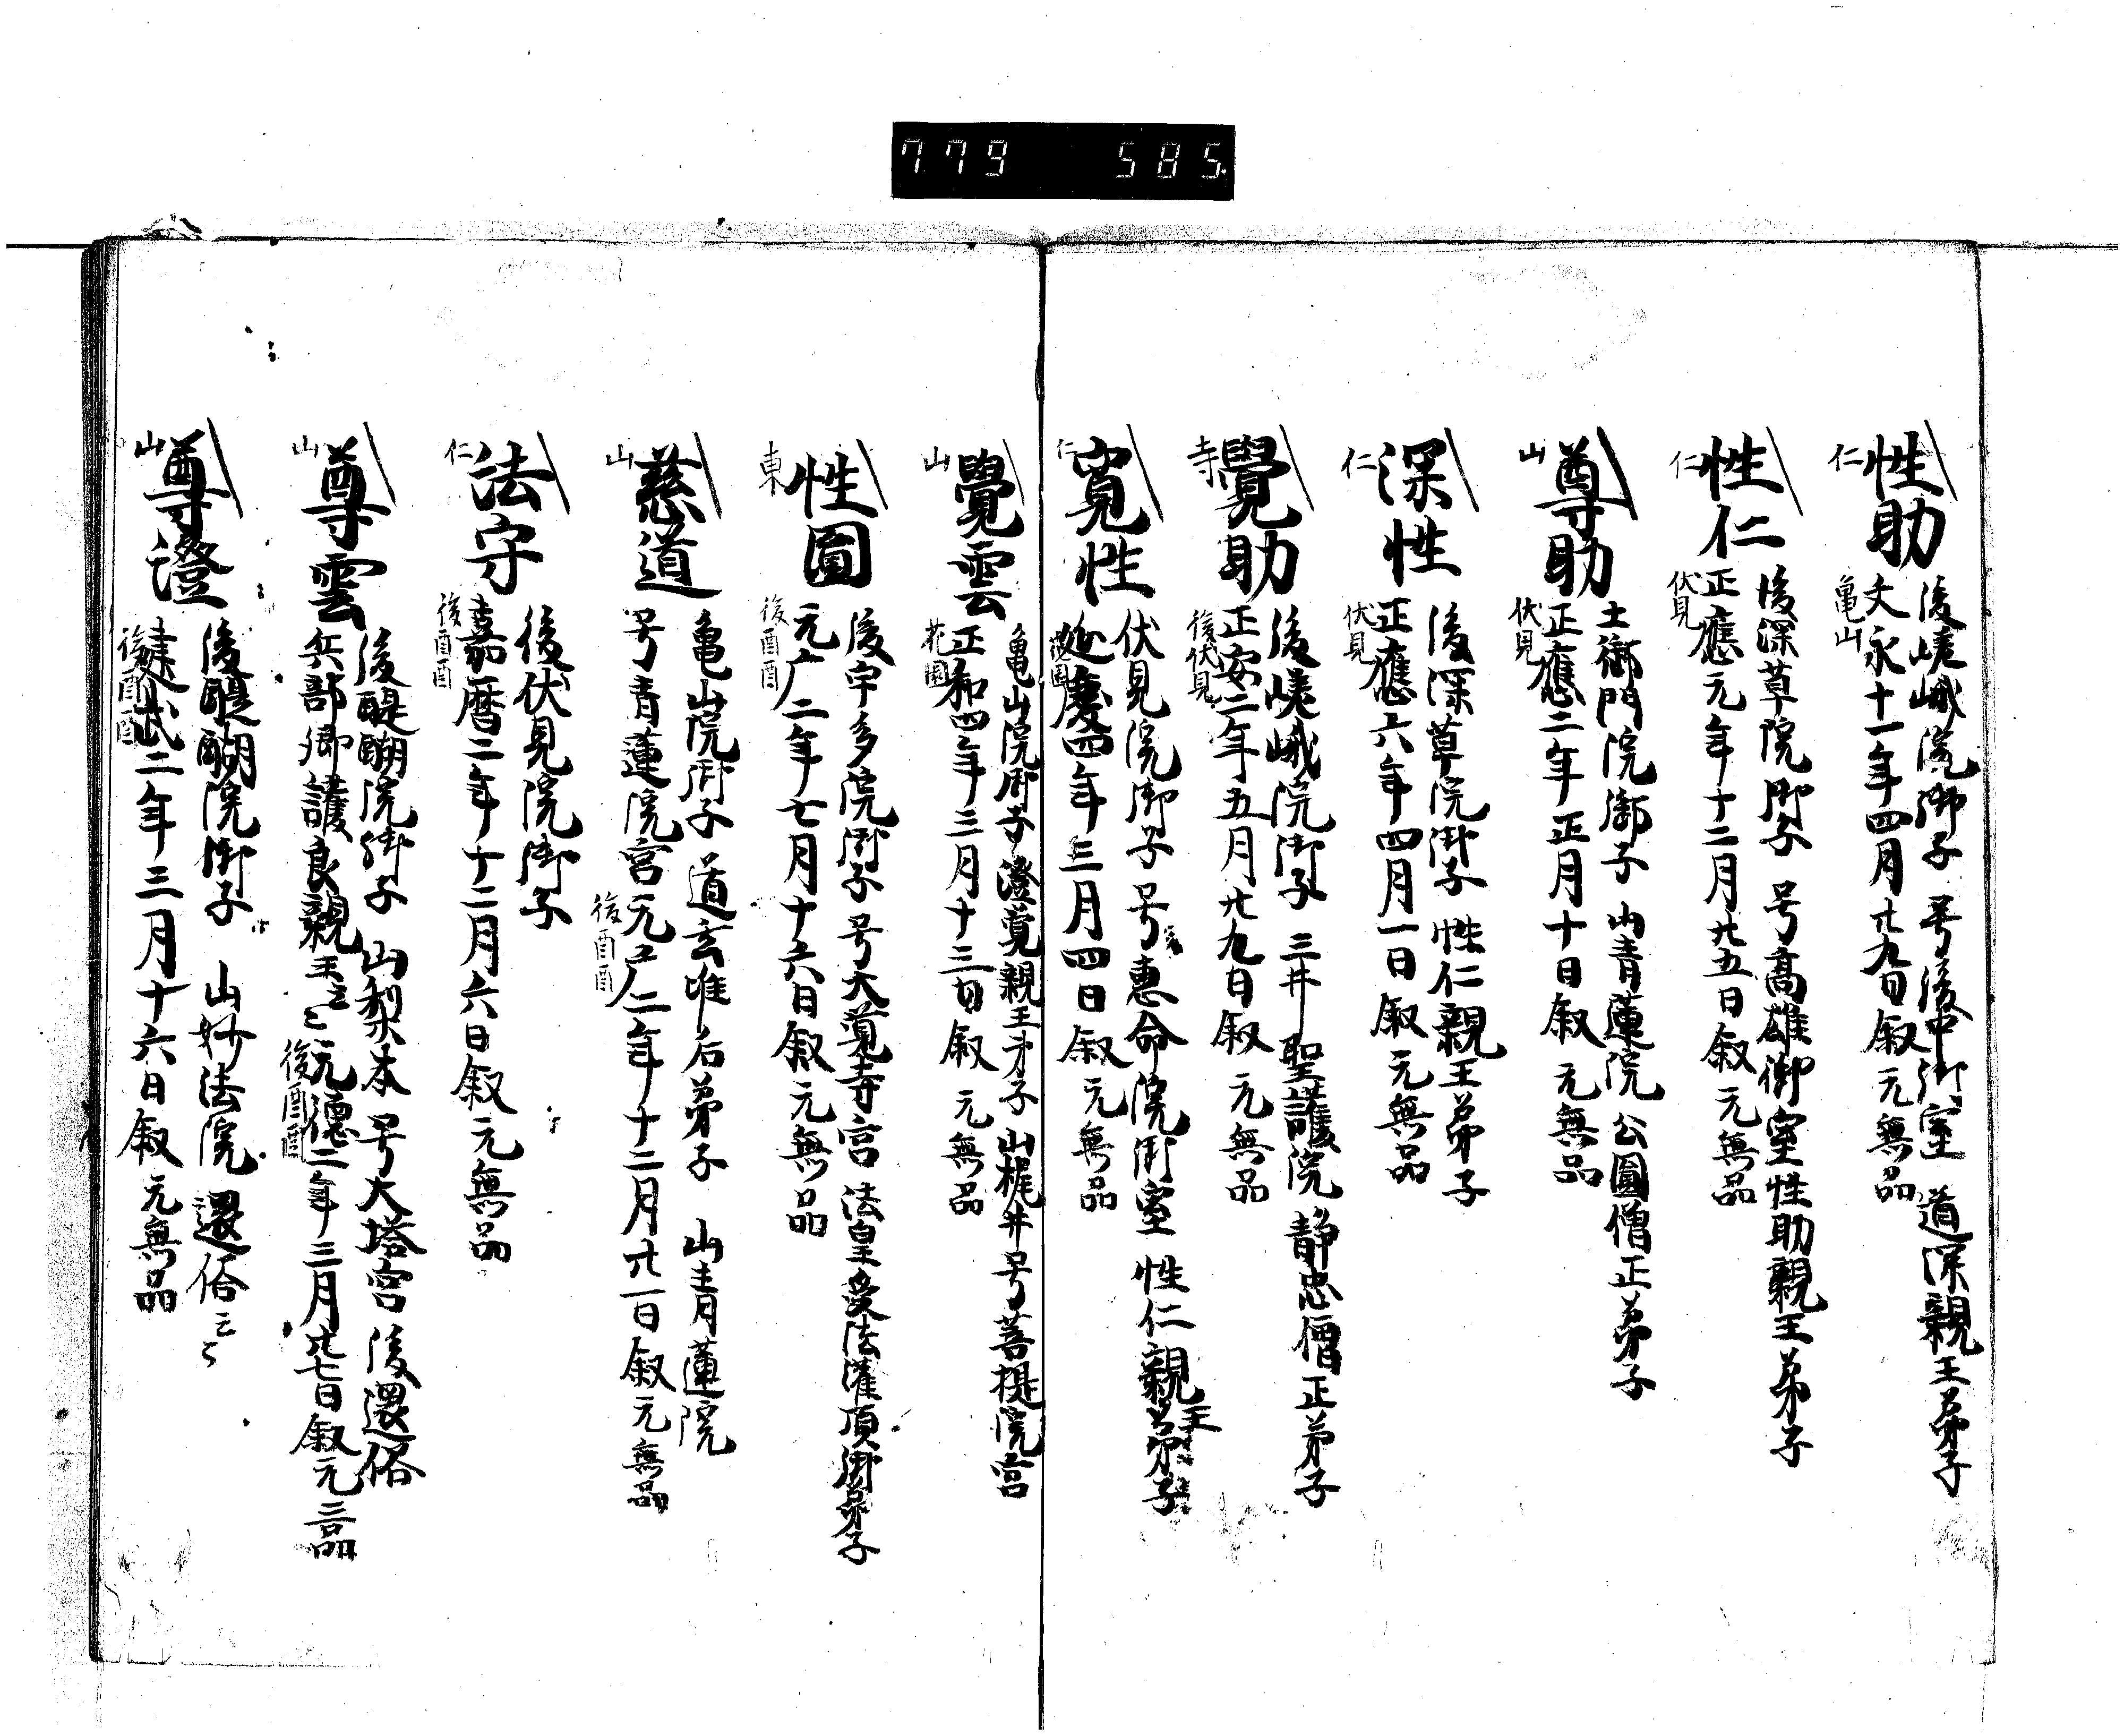 779 585
仁
性助
後嵯峨院御子 号後中御室 道深親王弟子
文永十一年四月廿九日叙 元無品
亀山
仁
性仁
後深草院御子 号高雄御室性助親王弟子
正應元年十二月廿五日叙 元無品
伏見
山
尊助
土御門院御子 山青蓮院 公圓僧正弟子
正應二年正月十日叙 元無品
伏見
仁
深性
後深草院御子 性仁親王弟子
正應六年四月一日叙 元無品
伏見
寺
覺助
後嵯峨院御子 三井聖護院 静忠僧正弟子
正安二年五月廿九日叙 元無品
後伏見
仁
寛性
伏見院御子 号惠命院御室 性仁親王弟子
延慶四年三月四日叙 元無品
花園
山
覺雲
亀山院御子 澄覚親王弟子 山梶井号菩提院宮
正和四年三月十三日叙 元無品
花園
東
性圓
後宇多院御子 号大覚寺宮 法皇受法灌頂御弟子
元广二年七月十六日叙 元無品
後酉酉
山
慈道
亀山院御子 道玄准后弟子 山青蓮院
号青蓮院宮 元广二年十二月廿一日叙 元無品
後酉酉
仁
法守
後伏見院御子
嘉暦二年十二月六日叙 元無品
後酉酉
山
尊雲
後醍醐院御子 山梨本 号大塔宮 後還俗
兵部卿護良親王云々 元德二年三月廿七日叙 元三品
後酉酉
山
尊澄
後醍醐院御子 山妙法院 還俗云々
建武二年三月十六日叙 元無品
後酉酉